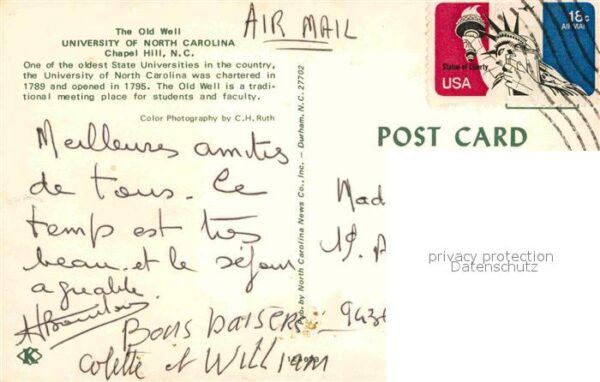 The Old Well
UNIVERSITY OF NORTH CAROLINA
Chapel Hill, N.C.
One of the oldest State Universities in the country,
the University of North Carolina was chartered in
1789 and opened in 1795. The Old Well is a tradi-
tional meeting place for students and faculty.
Color Photography by C.H. Ruth
AIR MAIL
18c
AIR MAIL
Statue of Liberty
USA
POST CARD
Meilleures amitiés
de tous. Le
temps est très
beau et le séjour
agréable.
Bons baisers
Colette et William
by North Carolina News Co., Inc. — Durham, N.C. 27702
Mad
19.
943
privacy protection
Datenschutz
K